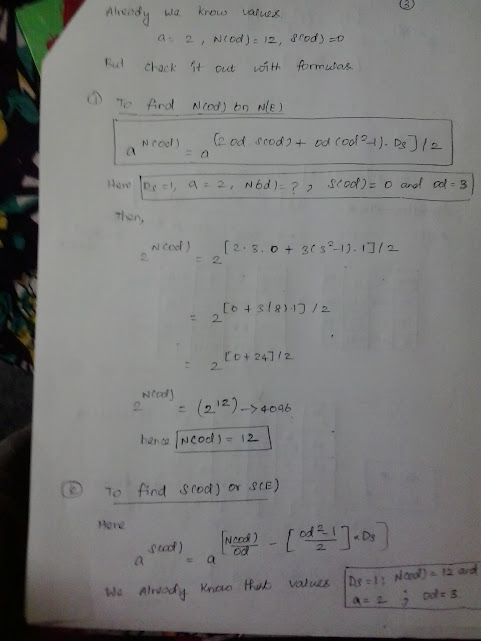 ③
Already we know values
a = 2, N(od) = 12, S(od) = 0
But check it out with formulas
① To find N(od) or N(E)
a^N(od) = a^[2 od S(od) + od(od²-1). Ds]/2
Here Ds = 1, a = 2, N(od) = ?, S(od) = 0 and od = 3
Then,
2^N(od) = 2^[2.3.0 + 3(3²-1).1]/2
= 2^[0 + 3(8).1]/2
= 2^[0+24]/2
2^N(od) = (2^12) → 4096
hence N(od) = 12
② To find S(od) or S(E)
Here
a^S(od) = a^[N(od)/od - [od²-1/2] × Ds]
We Already know that values Ds = 1; N(od) = 12 and
a = 2 ; od = 3